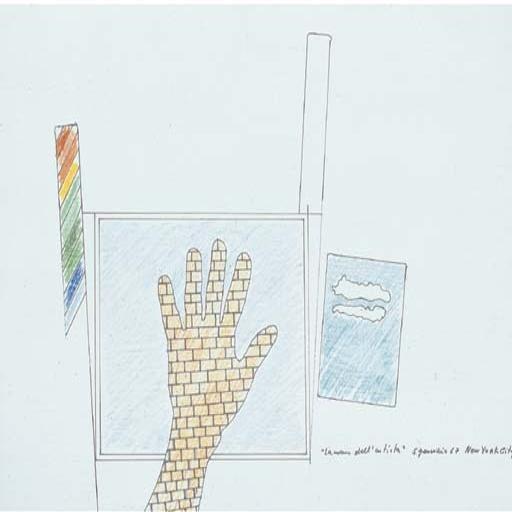 "La mano dell'artista" 5 gennaio 67 New York City